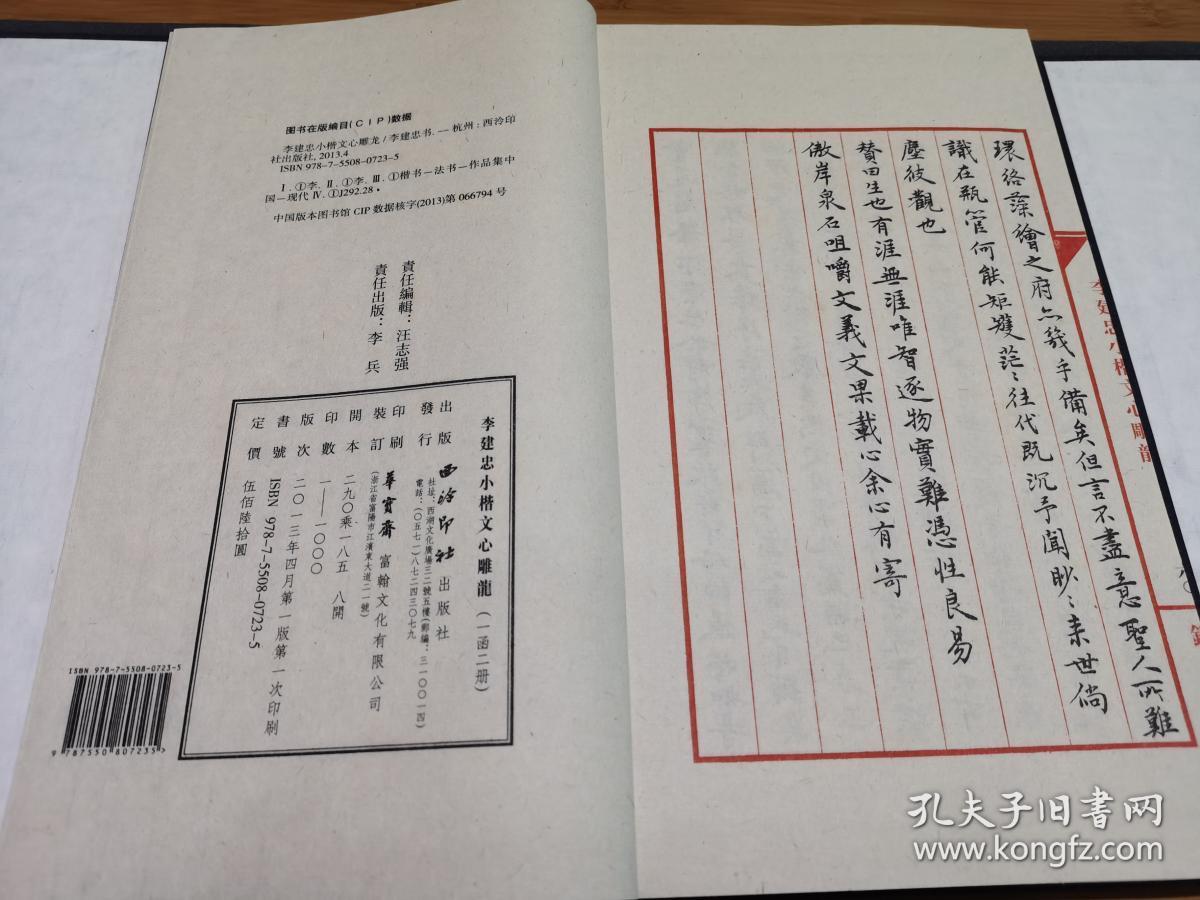 图书在版编目(CIP)数据
李建忠小楷文心雕龙/李建忠书. 一 杭州:西泠印
社出版社, 2013.4
ISBN 978-7-5508-0723-5
Ⅰ.①李. Ⅱ.①李. Ⅲ.①楷书—法书—作品集中
国—现代 Ⅳ.①J292.28·
中国版本图书馆 CIP 数据核字(2013)第 066794 号
責任編輯：汪志强
責任出版：李 兵
李建忠小楷文心雕龍（一函二册）
出版 西泠印社出版社
發行 社址：西湖文化廣場三二號五樓(郵編：三一〇〇一四)
電話：(〇五七一)八七二四三〇七九
印刷 華寶齋富翰文化有限公司
裝訂 (浙江省富陽市江濱東大道二一號)
開本 二九〇乘一八五 八開
印數 一—一〇〇〇
版次 二〇一三年四月第一版第一次印刷
書號 ISBN 978-7-5508-0723-5
定價 伍佰陸拾圓
ISBN 978-7-5508-0723-5
9 787550 807235>
環絡藻繪之府亦幾乎備矣但言不盡意聖人所難
識在瓶管何能矩矱茫〻往代既沉予聞眇〻来世倘
塵彼觀也
賛曰生也有涯無涯唯智逐物實難憑性良易
傲岸泉石咀嚼文義文果載心余心有寄
李建忠小楷文心雕龍
孔夫子旧书网
www.kongfz.com